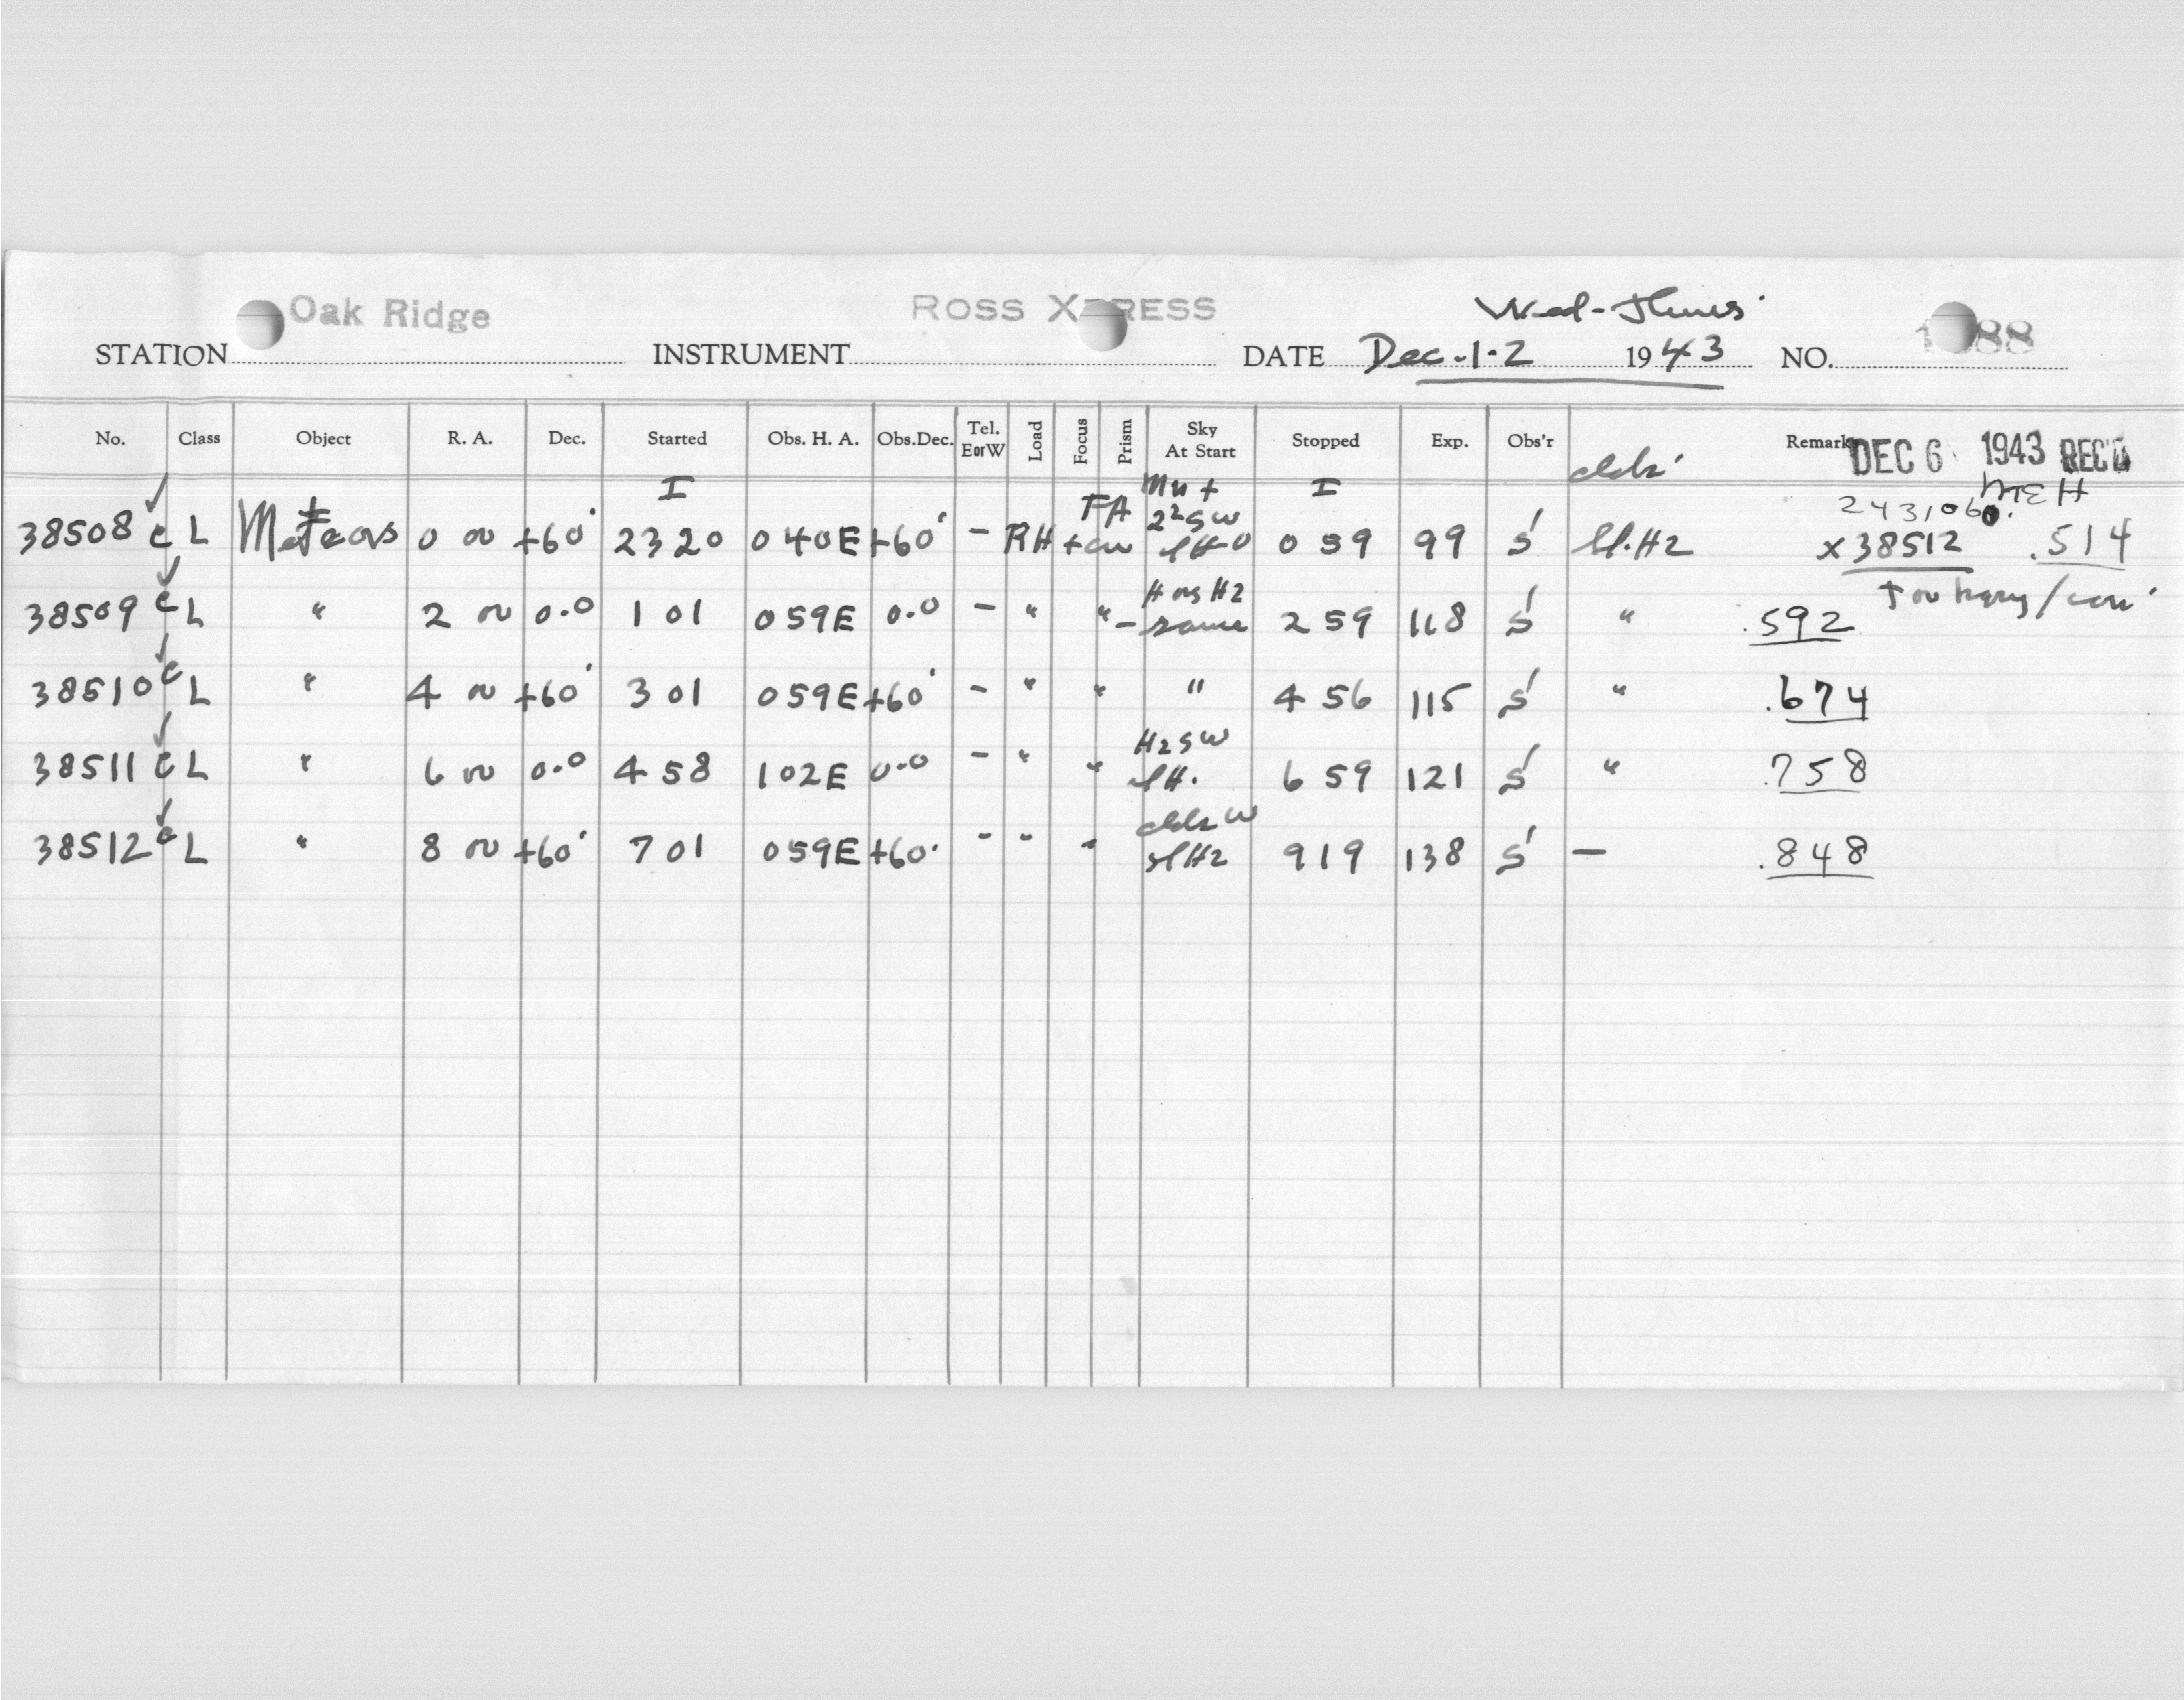 Oak Ridge ROSS XPRESS Wed-Thurs
STATION INSTRUMENT DATE Dec. 1-2 1943 NO. 88
No. Class Object R. A. Dec. Started Obs. H. A. Obs.Dec. Tel. EorW Load Focus Prism Sky At Start Stopped Exp. Obs'r Remark DEC 6 1943 REC'D
I FA I 2431060. MEH
38508 c L Meteors 0 00 +60 2320 040E +60 - RH 0 59 99 S Sl.Hz x38512 .514
38509 c L " 2 00 0.0 1 01 059E 0.0 - " " - Same 2 59 118 S " .592
38510 c L " 4 00 +60 3 01 059E +60 - " " " 4 56 115 S " .674
Hz SW
38511 c L " 6 00 0.0 4 58 102E 0.0 - " " 6 59 121 S " .758
clds W
38512 c L " 8 00 +60 7 01 059E +60 - " " slHz 9 19 138 S — .848